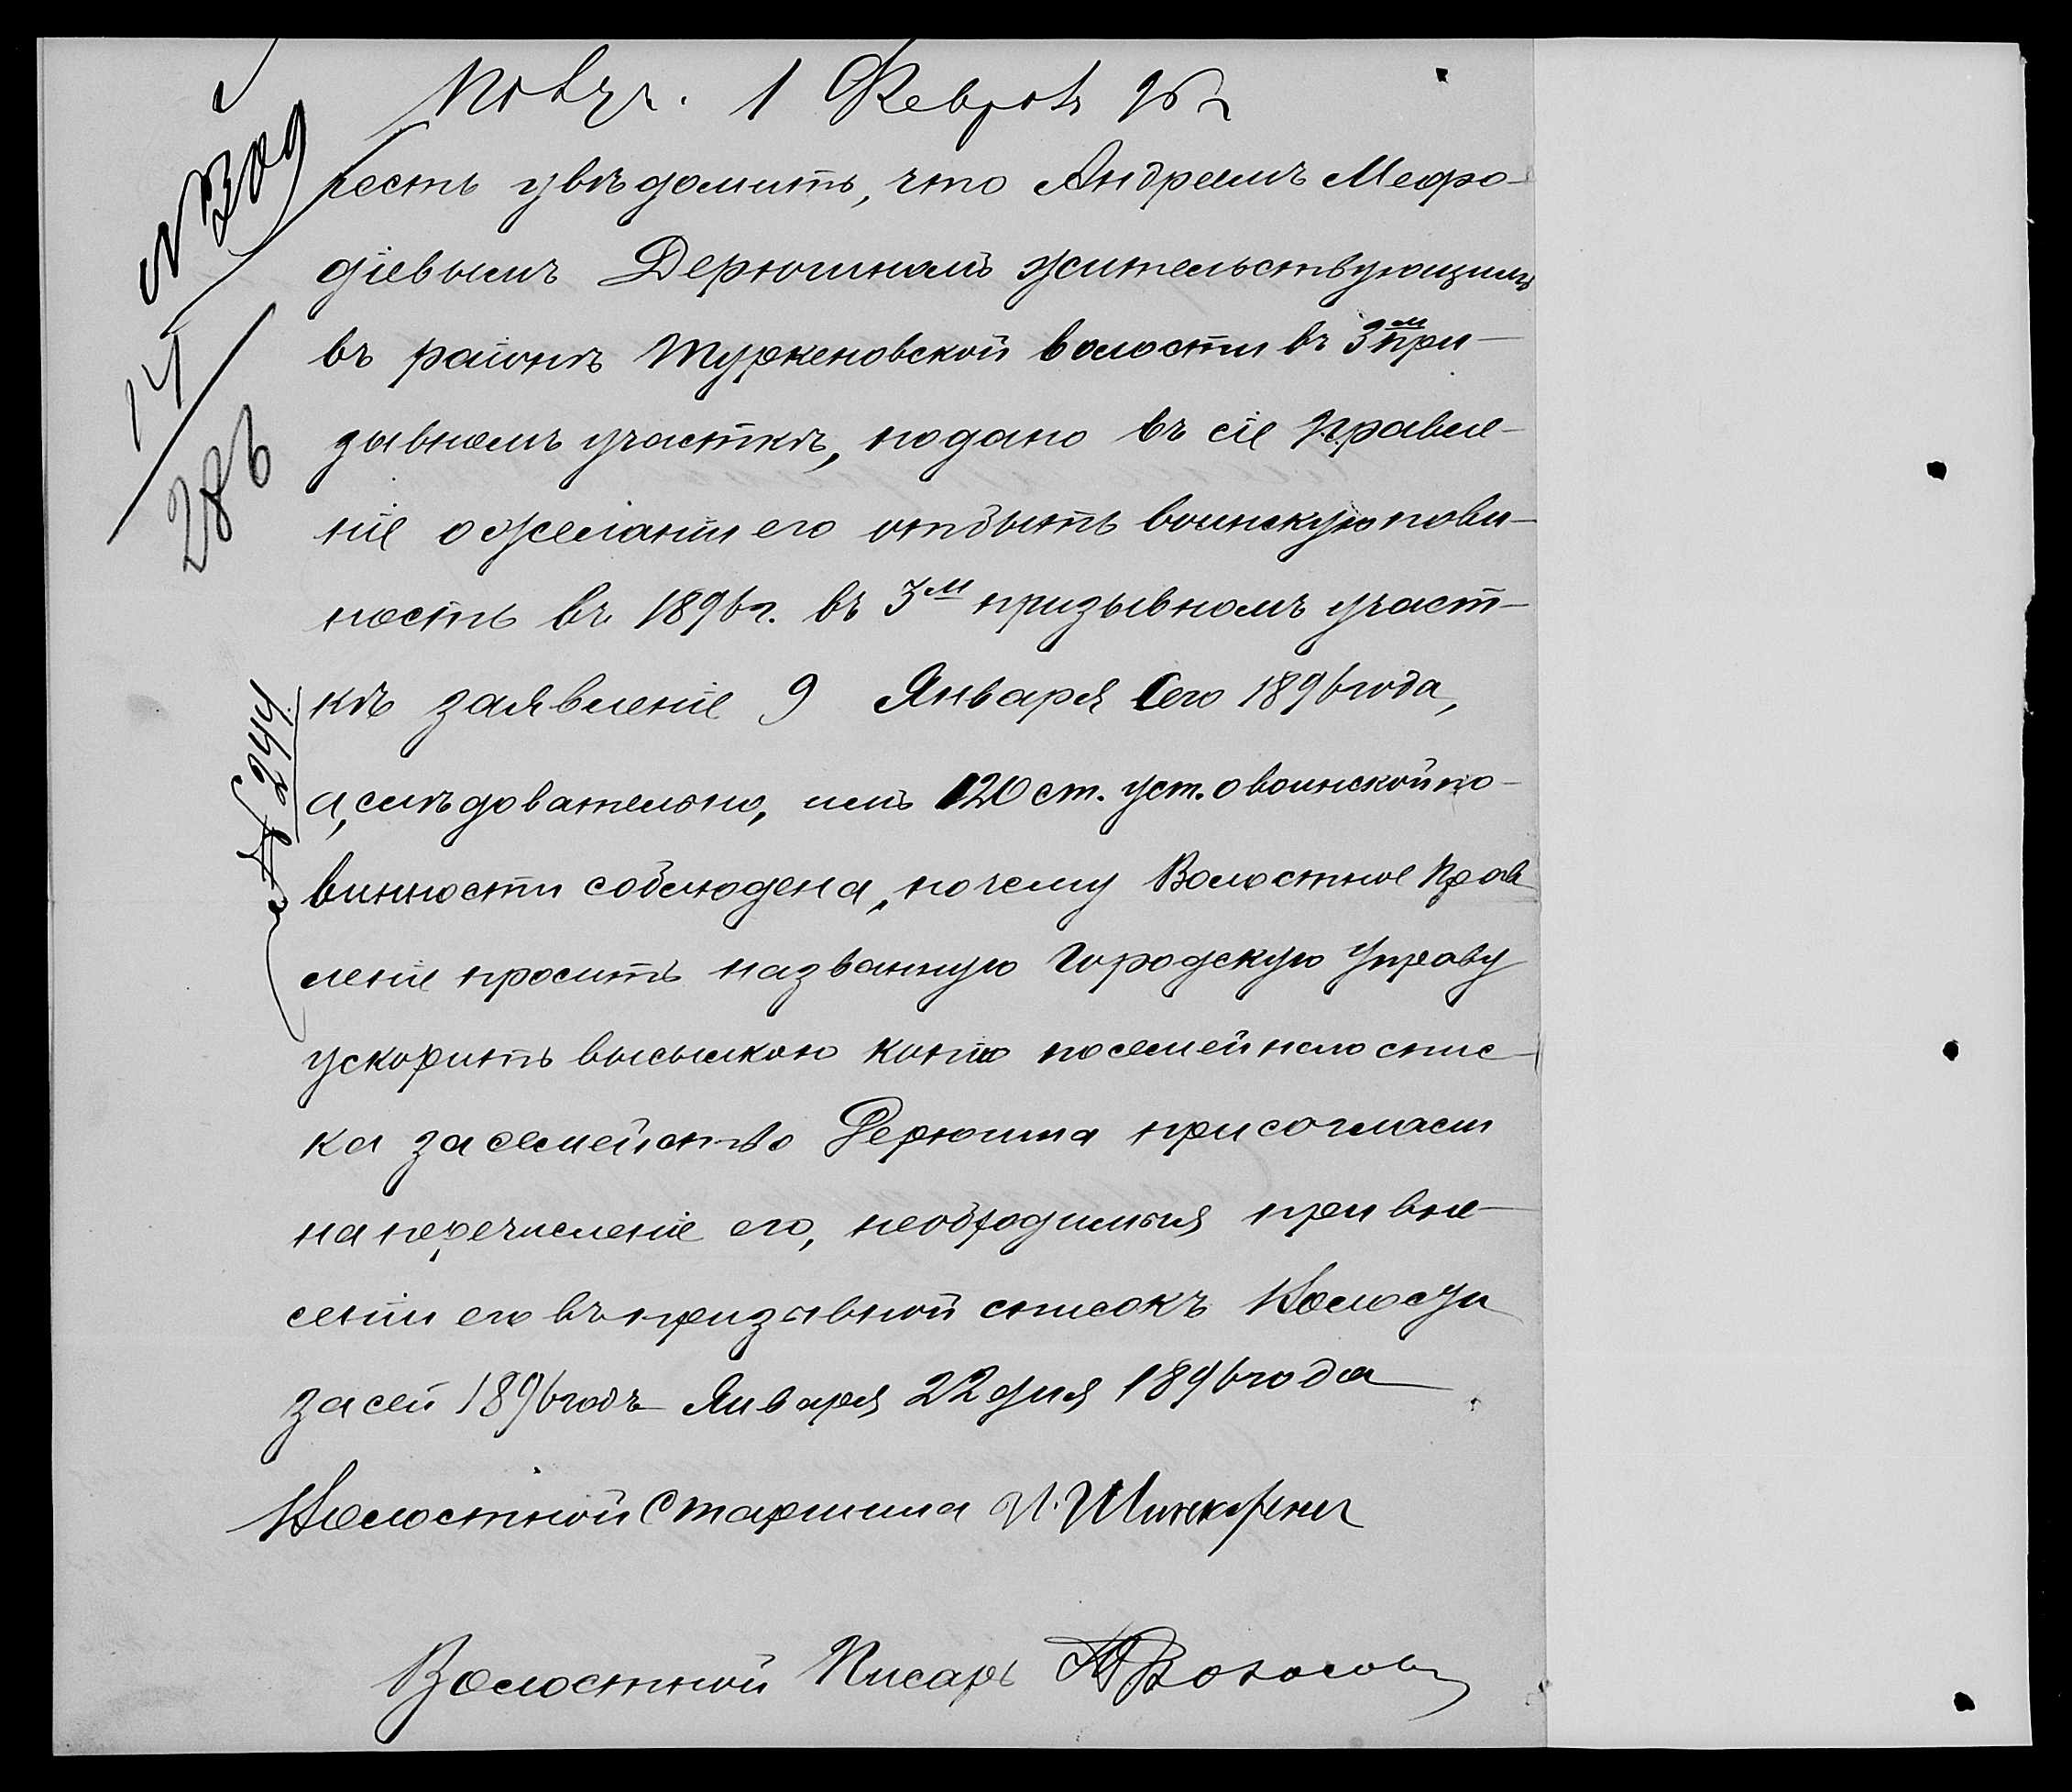 Получ. 1 Февраля 96 г
№ 309
14
286
честь увѣдомить, что Андреемъ Мефо-
діевымъ Дерюшномъ жительствующимъ
въ районѣ Туркеновской волости въ 3м при-
зывномъ участкѣ, подано въ сіе Правле-
ніе о желаніи его отбыть воинскую пови-
ность въ 1896 г. въ 3м призывномъ участ-
кѣ заявленіе 9 Января сего 1896 года,
№ 244
а, слѣдовательно, имъ 120 ст. уст. о воинской по-
винности соблюдена, почему Волостное Прав
леніе проситъ названную Городскую Управу
ускорить высылкою копіи посемейнаго спис-
ка за семейство Дерюшна при согласіи
на перечисленіе его, необходимыя при вне-
сеніи его въ призывной списокъ Волости
за сей 1896 годъ Января 22 дня 1896 года
Волостной Старшина И.
Волостной Писарь